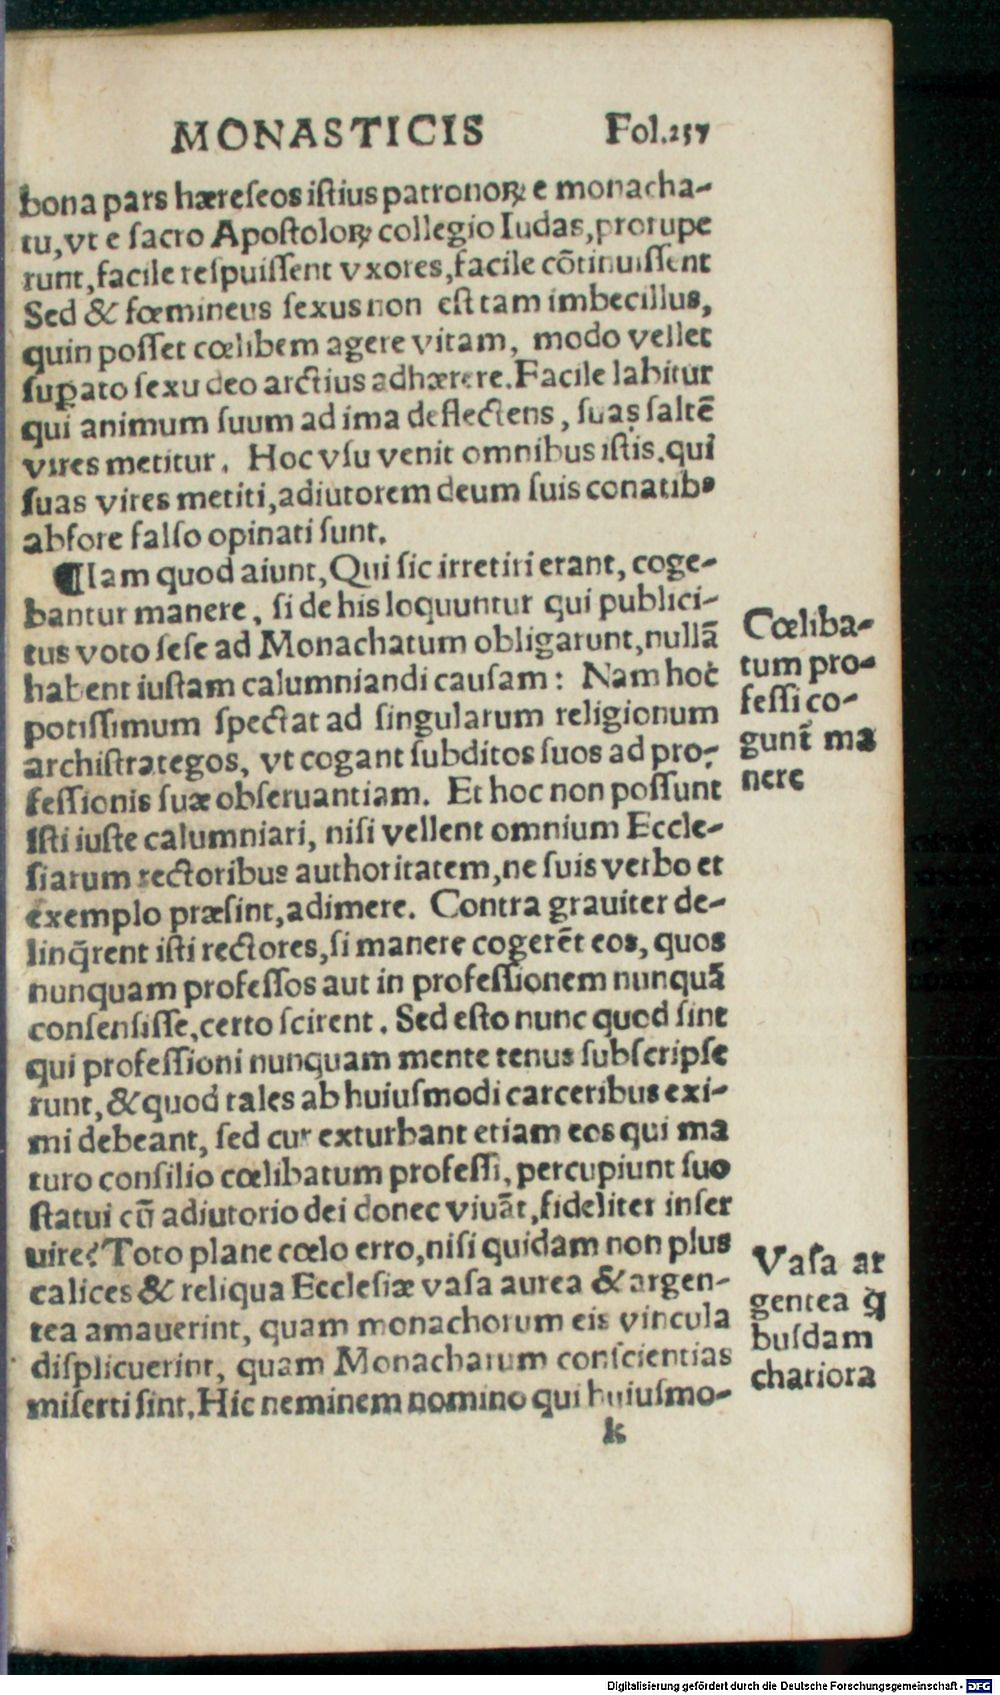 MONASTICIS Fol.257
bona pars hæreſeos iſtius patronoꝝ e monacha-
tu,vt e ſacro Apoſtoloꝝ collegio Iudas,prorupe
runt,facile reſpuiſſent vxores,facile cõtinuiſſent
Sed & fœmineus ſexus non eſt tam imbecillus,
quin poſſet cœlibem agere vitam, modo vellet
ſuꝑato ſexu deo arctius adhærere.Facile labitur
qui animum ſuum ad ima deflectens, ſuas ſaltẽ
vires metitur. Hoc vſu venit omnibus iſtis.qui
ſuas vires metiti,adiutorem deum ſuis conatibꝰ
abfore falſo opinati ſunt.
¶Iam quod aiunt,Qui ſic irretiti erant, coge-
bantur manere, ſi de his loquuntur qui publici-
tus voto ſeſe ad Monachatum obligarunt,nullã
habent iuſtam calumniandi cauſam: Nam hoc
potiſſimum ſpectat ad ſingularum religionum
archiſtrategos, vt cogant ſubditos ſuos ad pro-
feſſionis ſuæ obſeruantiam. Et hoc non poſſunt
iſti iuſte calumniari, niſi vellent omnium Eccle-
ſiarum rectoribus authoritatem,ne ſuis verbo et
exemplo præſint,adimere. Contra grauiter de-
linq̃rent iſti rectores,ſi manere cogerẽt eos, quos
nunquam profeſſos aut in profeſſionem nunquã
conſenſiſſe,certo ſcirent. Sed eſto nunc quod ſint
qui profeſſioni nunquam mente tenus ſubſcripſe
runt,& quod tales ab huiuſmodi carceribus exi-
mi debeant, ſed cur exturbant etiam eos qui ma
turo conſilio cœlibatum profeſſi, percupiunt ſuo
ſtatui cũ adiutorio dei donec viuãt,fideliter inſer
uire? Toto plane cœlo erro,niſi quidam non plus
calices & reliqua Eccleſiæ vaſa aurea & argen-
tea amauerint, quam monachorum eis vincula
diſplicuerint, quam Monacharum conſcientias
miſerti ſint.Hic neminem nomino qui huiuſmo-
k
Cœliba-
tum pro-
feſſi co-
gunt̃ ma
nere
Vaſa ar
gentea q̃
buſdam
chariora
Digitalisierung gefördert durch die Deutsche Forschungsgemeinschaft - DFG